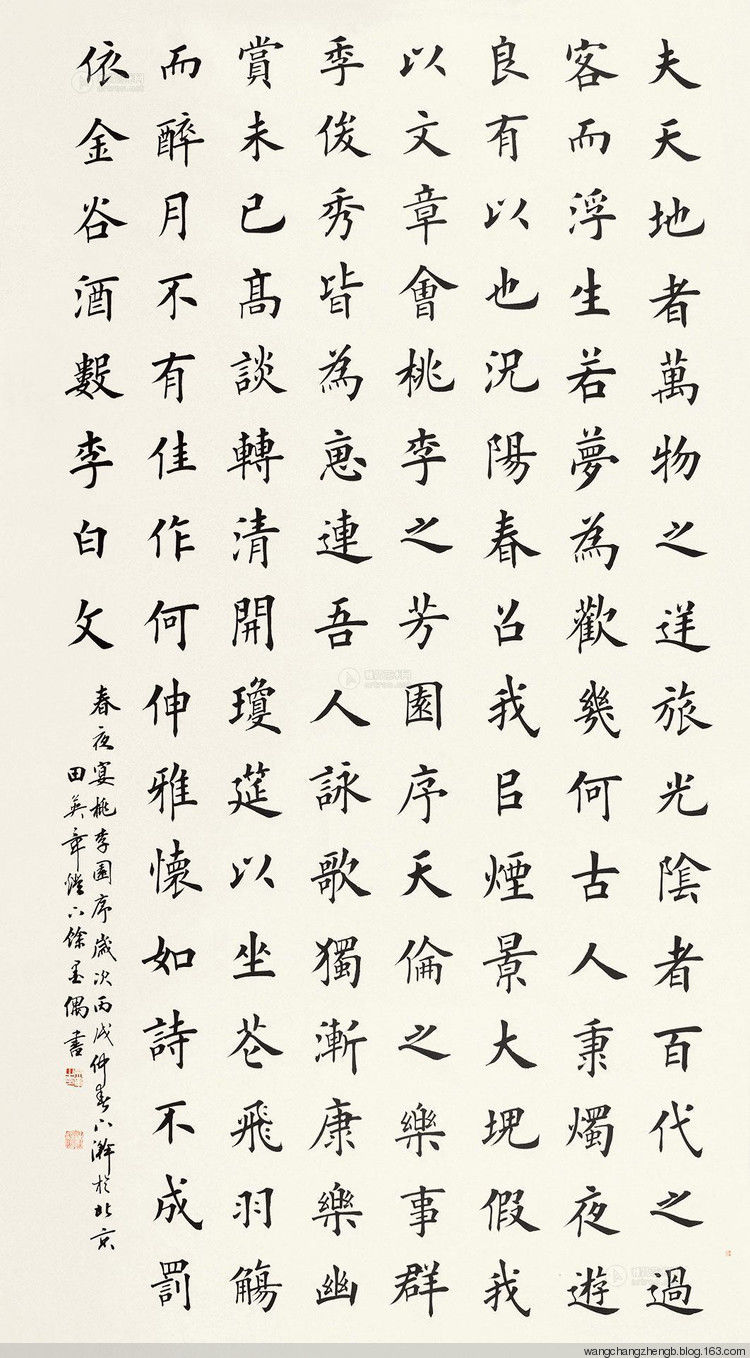 夫天地者萬物之逆旅光陰者百代之過
客而浮生若夢為歡幾何古人秉燭夜遊
良有以也況陽春召我㠯煙景大塊假我
以文章會桃李之芳園序天倫之樂事群
季俊秀皆為惠連吾人詠歌獨漸康樂幽
賞未已髙談轉清開瓊筵以坐花飛羽觴
而醉月不有佳作何伸雅懷如詩不成罰
依金谷酒數李白文
春夜宴桃李園序歲次丙戌仲春下澣於北京
田英章燈下餘墨偶書
wangchangzhengb.blog.163.com